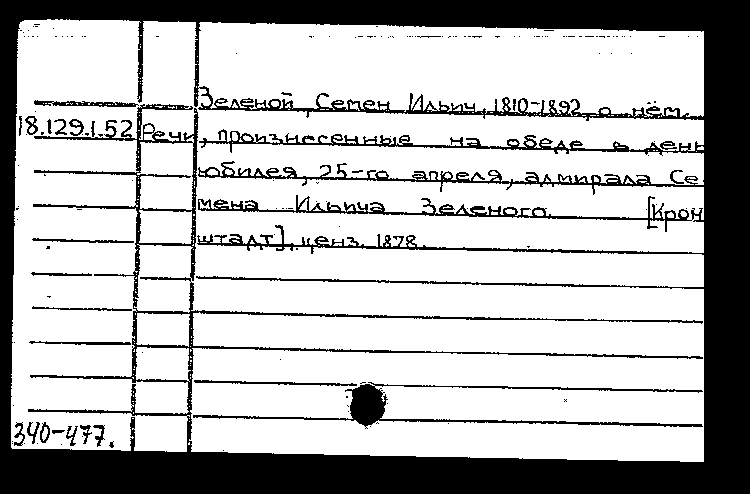 Зеленой, Семен Ильич, 1810-1892, о нём.
18.129.1.52 Речи, произнесенные на обеде в день
юбилея, 25-го апреля, адмирала Се-
мена Ильича Зеленого. [Крон
штадт], ценз. 1878.
340-477.